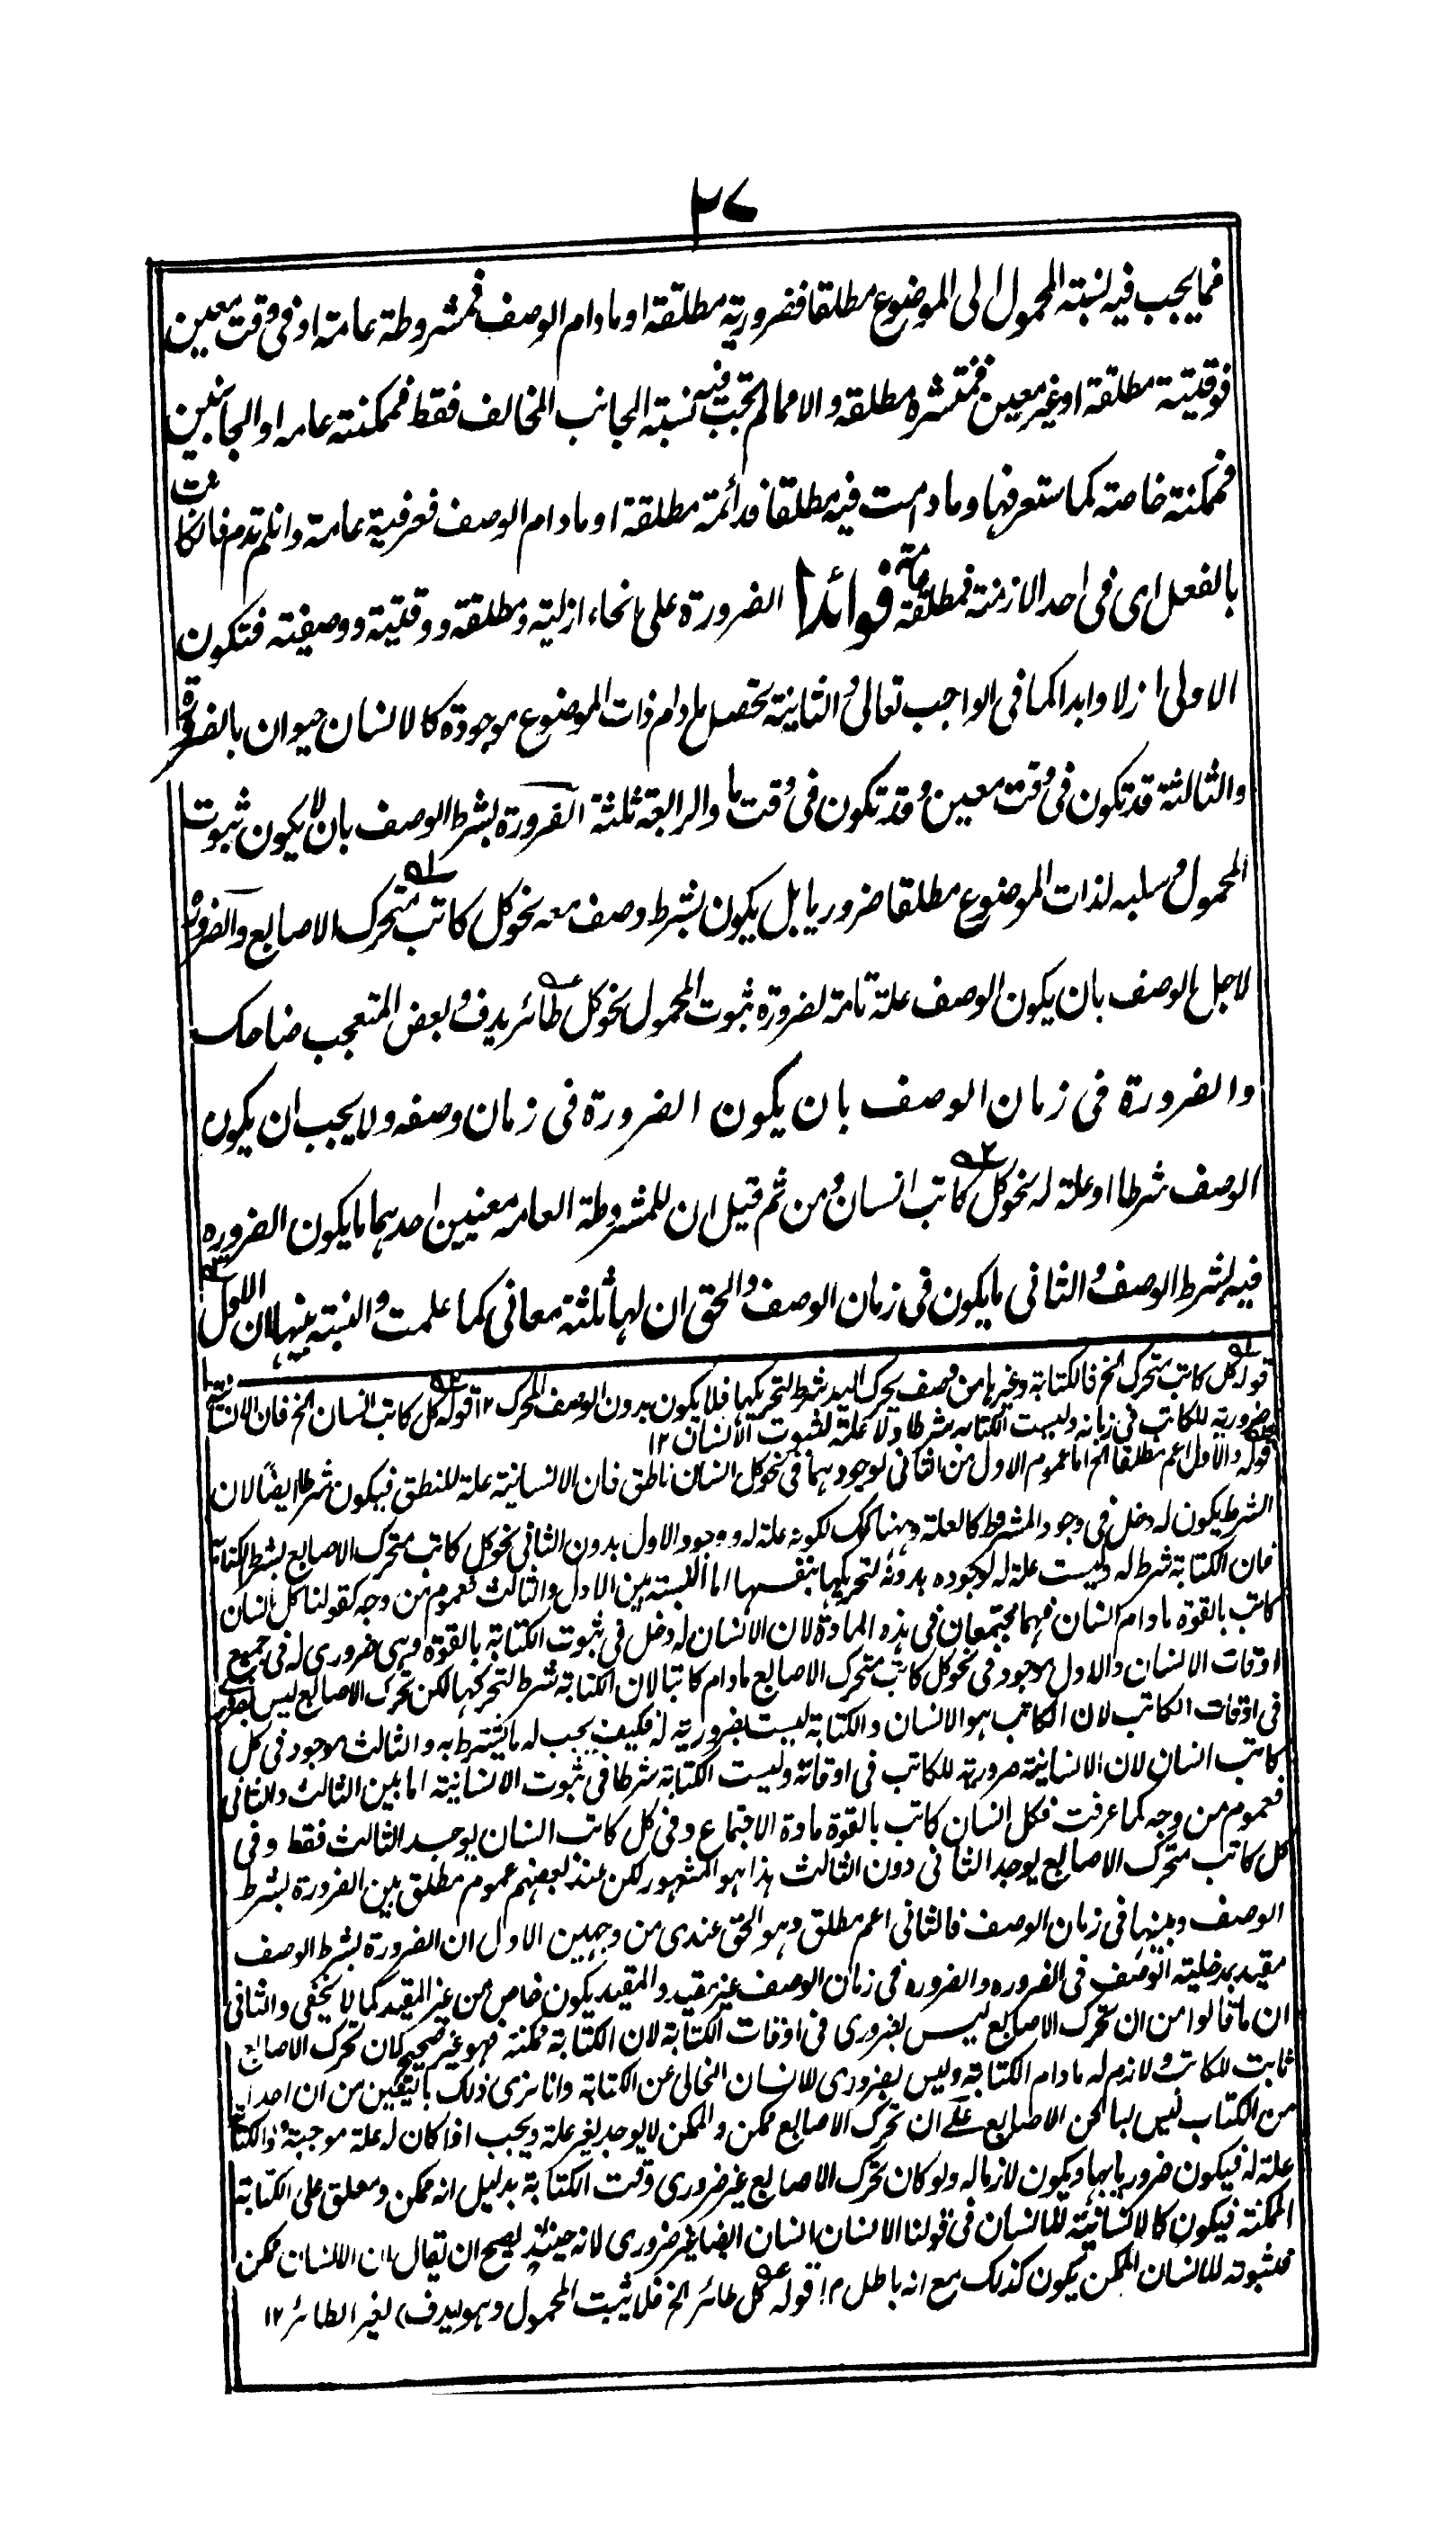 ٢٧
فما يجب فيه نسبته المحمول الى الموضوع مطلقا فضرورية مطلقة او مادام الوصف فمشروطة عامة او فى وقت معين
فوقتية مطلقة او غير معين فمنتشره مطلقه والا مما لم تجب فيه نسبته الجانب المخالف فقط فممكنته عامه او الجانبين
فممكنته خاصته كما ستعرفها وما دامت فيه مطلقا فدائمة مطلقة او مادام الوصف فعرفية عامة وان لم تدم فان كانت
بالفعل اى فى احد الازمنته فمطلقة عامة فوائد ا الضرورة على انحاء ازليته ومطلقة ووقتية ووصفيته فتكون
الاولى ازلا وابدا كما فى الواجب تعالى والثانية تحصل مادام ذات الموضوع موجودة كالانسان حيوان بالضرورة
والثالثة قد تكون فى وقت معين وقد تكون فى وقت ما والرابعة ثلثة الضرورة بشرط الوصف بان لا يكون ثبوت
المحمول وسلبه لذات الموضوع مطلقا ضروريا بل يكون بشرط وصف معه نحو كل كاتب متحرك الاصابع والضرورة
لاجل الوصف بان يكون الوصف علة تامة لضرورة ثبوت المحمول نحو كل طائر يدف وبعض المتعجب ضاحك
والضرورة فى زمان الوصف بان يكون الضرورة فى زمان وصفه ولا يجب ان يكون
الوصف شرطا او علة له نحو كل كاتب انسان ومن ثم قيل ان للمشروطة العامه معنيين احدهما ما يكون الضروره
فيه بشرط الوصف والثانى ما يكون فى زمان الوصف والحق ان لها ثلثة معانى كما علمت والنسبته بينها ان الاول
قوله كل كاتب متحرك الخ فالكتابة وغيرها من وصف يحرك اليد شرط لتحريكها فلا يكون بدون الوصف المحرك ١٢ قوله كل كاتب انسان الخ فان الانسانية
ضرورية للكاتب فى زمانه وليست الكتابه شرطا ولا علة لثبوت الانسان ١٢
قوله والاول اعم مطلقا الخ اما عموم الاول من الثانى لوجودهما فى نحو كل انسان ناطق فان الانسانية علة للنطق فيكون شرطا ايضا لان
الشرط يكون له دخل فى وجود المشروط كالعلة وههنا كذلك لكونه علة له ووجود الاول بدون الثانى نحو كل كاتب متحرك الاصابع بشرط الكتابة
فان الكتابة شرط له وليست علة له لوجوده بدونه لتحريكها بنفسها اما النسبته بين الاول والثالث فعموم من وجه كقولنا كل انسان
كاتب بالقوة مادام انسان فهما مجتمعان فى هذه المادة لان الانسان له دخل فى ثبوت الكتابة بالقوة وهى ضرورى له فى جميع
اوقات الانسان والاول موجود فى نحو كل كاتب متحرك الاصابع مادام كاتبا لان الكتابة شرط لتحركها لكن تحرك الاصابع ليس بضرورى
فى اوقات الكاتب لان الكاتب هو الانسان والكتابة ليست بضرورية له فكيف يجب له ما يشترط به والثالث موجود فى كل
كاتب انسان لان الانسانية ضرورية للكاتب فى اوقاته وليست الكتابة شرطا فى ثبوت الانسانية اما بين الثالث والثانى
فعموم من وجه كما عرفت فكل انسان كاتب بالقوة مادة الاجتماع وفى كل كاتب انسان يوجد الثالث فقط وفى
كل كاتب متحرك الاصابع يوجد الثانى دون الثالث هذا هو المشهور لكن عند بعضهم عموم مطلق بين الضرورة بشرط
الوصف وبينها فى زمان الوصف فالثانى اعم مطلق وهو الحق عندى من وجهين الاول ان الضرورة بشرط الوصف
مقيد بمدخلية الوصف فى الضروره والضروره فى زمان الوصف غير مقيد والمقيد يكون خاص من غير المقيد كما لا يخفى والثانى
ان ما قالوا من ان تحرك الاصابع ليس بضرورى فى اوقات الكتابة لان الكتابة ممكنة فهو غير صحيح كان تحرك الاصابع
ثابت للكاتب ولازم له مادام الكتابة وليس بضرورى للانسان الخالى عن الكتابة وانا نرى ذلك باليقين من ان احدا
من الكتاب ليس بساكن الاصابع على ان تحرك الاصابع ممكن والممكن لا يوجد بغير علة ويجب اذا كان له علة موجبة والكتابة
علة له فيكون ضروريا بها ويكون لازما له ولو كان تحرك الاصابع غير ضرورى وقت الكتابة بدليل انه ممكن ومعلق على الكتابة
الممكنة فيكون كالانسانية للانسان فى قولنا الانسان انسان ايضا غير ضرورى لانه حينئذ يصح ان يقال ان الانسان ممكن
فثبوته للانسان الممكن يكون كذلك مع انه باطل م! قوله كل طائر الخ فلا يثبت المحمول وهو يدف) لغير الطائر ١٢